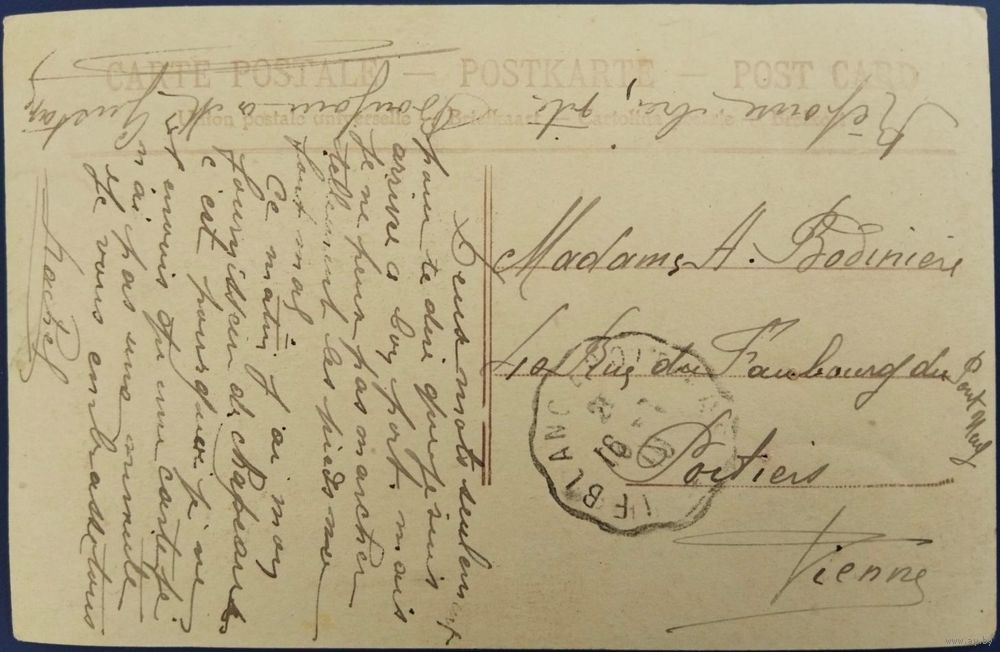 CARTE POSTALE — POSTKARTE — POST CARD
Union postale universelle Briefkaart - Cartolina
Réponse
Madame A. Bodinière
40 Rue du Faubourg du Pont Neuf
Poitiers
Vienne
LE BLANC
Deux mots seulement
pour te dire que je suis
arrivée a bon port mais
je ne peux pas marcher
tellement les pieds me
font mal
Ce matin j'ai mon
fournisseur de chapeaux
c'est pourquoi je ne
envois qu'une carte je
n'ai pas une minute
Je vous embrasse tous
Rachel
Bonjour a
Gustave
www.ay.by